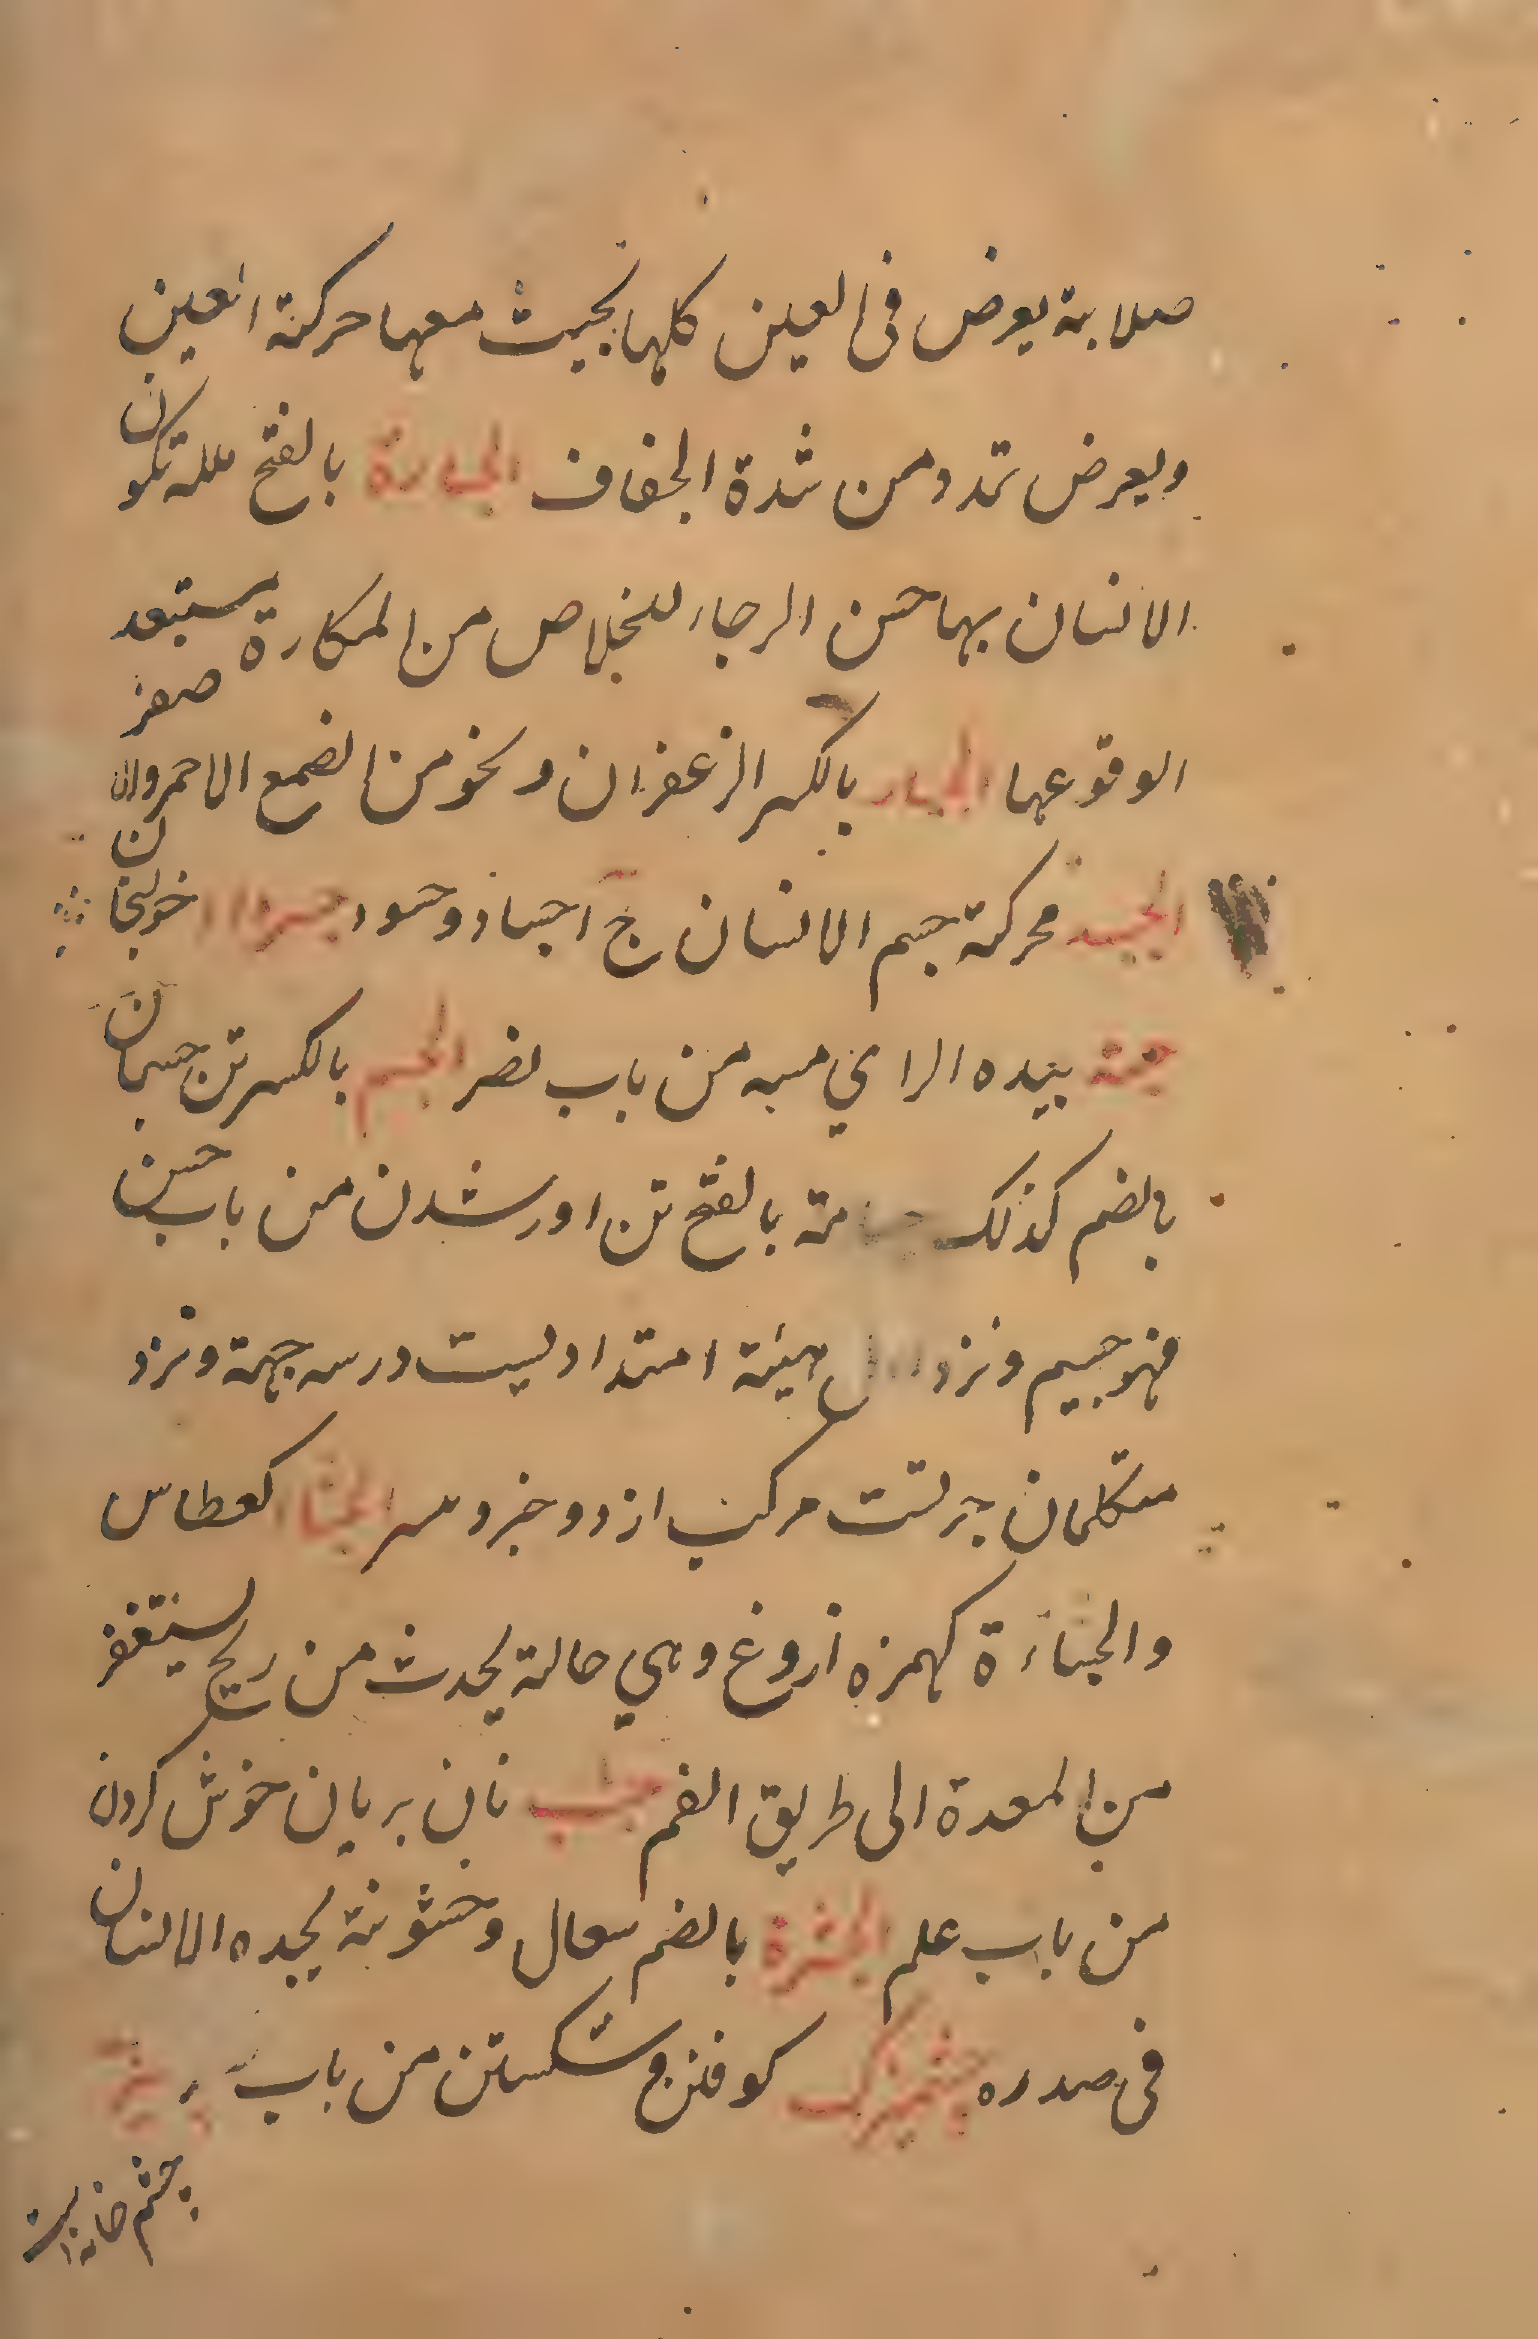 صلابة يعرض فى العين كلها بحيث معها حركة العين
ويعرض تمدد من شدة الجفاف الجسارة بالفتح ملكة تكون
الانسان بها حسن الرجاء للخلاص من المكارة يستبعد
الوقوعها الجساد بالكسر الزعفران ونحو من الصمغ الاحمر والاصفر
الجسد محركة جسم الانسان ج اجساد وجسود خولنجان
بيده الراي مسه من باب نصر الجسم بالكسر تن جسمان
بالضم كذلك جسامة بالفتح تن اور شدن من باب حسن
فهو جسيم ونزد هيئة امتداد ليست در سه جهة ونزد
متكلمان مركب از دو جزو الجشا كعطاس
والجشاءة كهمزه اروغ وهي حالة يحدث من ريح يستفر
من المعدة الى طريق الفم جشب نان بريان خوش كردن
من باب علم الجشرة بالضم سعال وخشونة يجده الانسان
فى صدره كوفتن وشكستن من باب
چشم خانه است